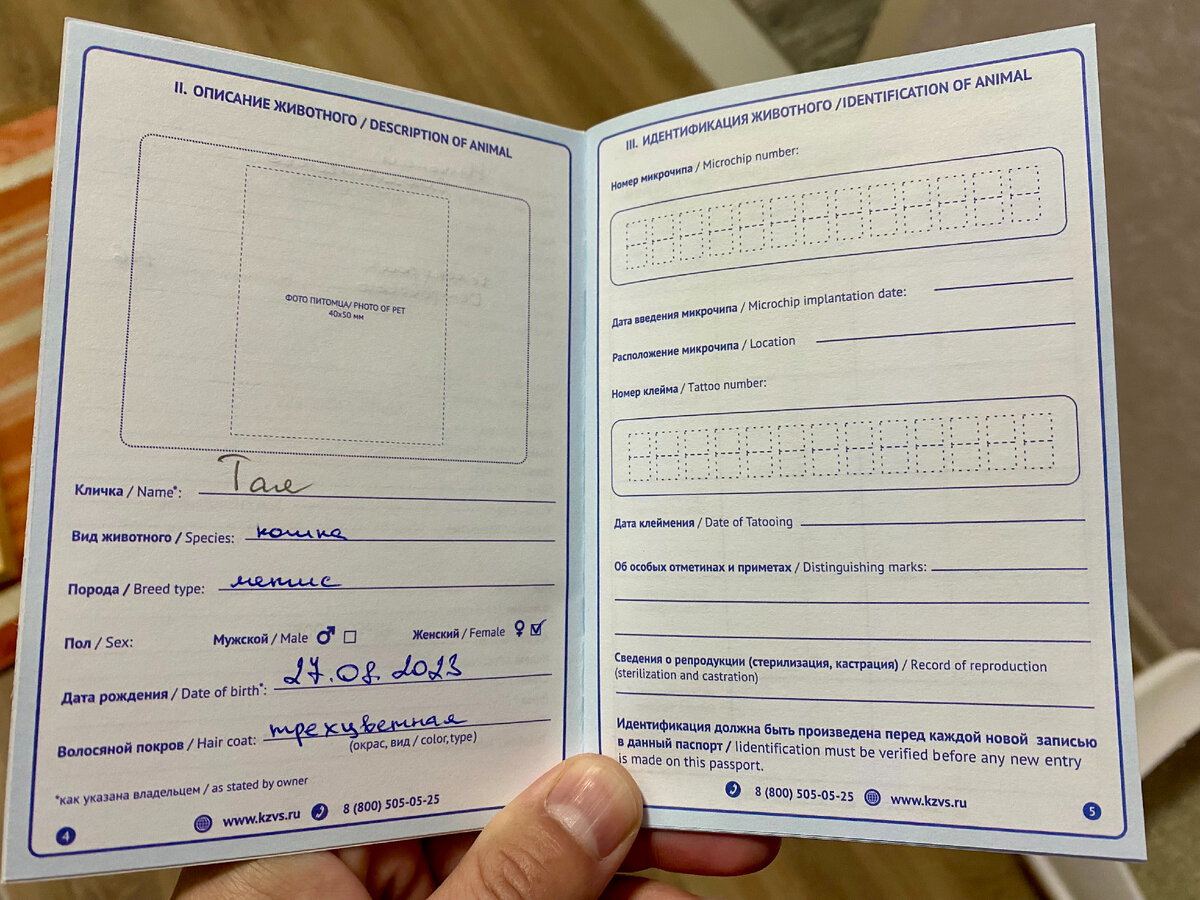 II. ОПИСАНИЕ ЖИВОТНОГО / DESCRIPTION OF ANIMAL
ФОТО ПИТОМЦА/ PHOTO OF PET
40x50 мм
Кличка / Name*: Тая
Вид животного / Species: кошка
Порода / Breed type: метис
Пол / Sex: Мужской / Male ♂ ☐ Женский / Female ♀ ☑
Дата рождения / Date of birth*: 27.08.2023
Волосяной покров / Hair coat: трехцветная
(окрас, вид / color,type)
*как указана владельцем / as stated by owner
4 www.kzvs.ru 8 (800) 505-05-25
III. ИДЕНТИФИКАЦИЯ ЖИВОТНОГО /IDENTIFICATION OF ANIMAL
Номер микрочипа / Microchip number:
Дата введения микрочипа / Microchip implantation date:
Расположение микрочипа / Location
Номер клейма / Tattoo number:
Дата клеймения / Date of Tatooing
Об особых отметинах и приметах / Distinguishing marks:
Сведения о репродукции (стерилизация, кастрация) / Record of reproduction
(sterilization and castration)
Идентификация должна быть произведена перед каждой новой записью
в данный паспорт / Iidentification must be verified before any new entry
is made on this passport.
8 (800) 505-05-25 www.kzvs.ru 5